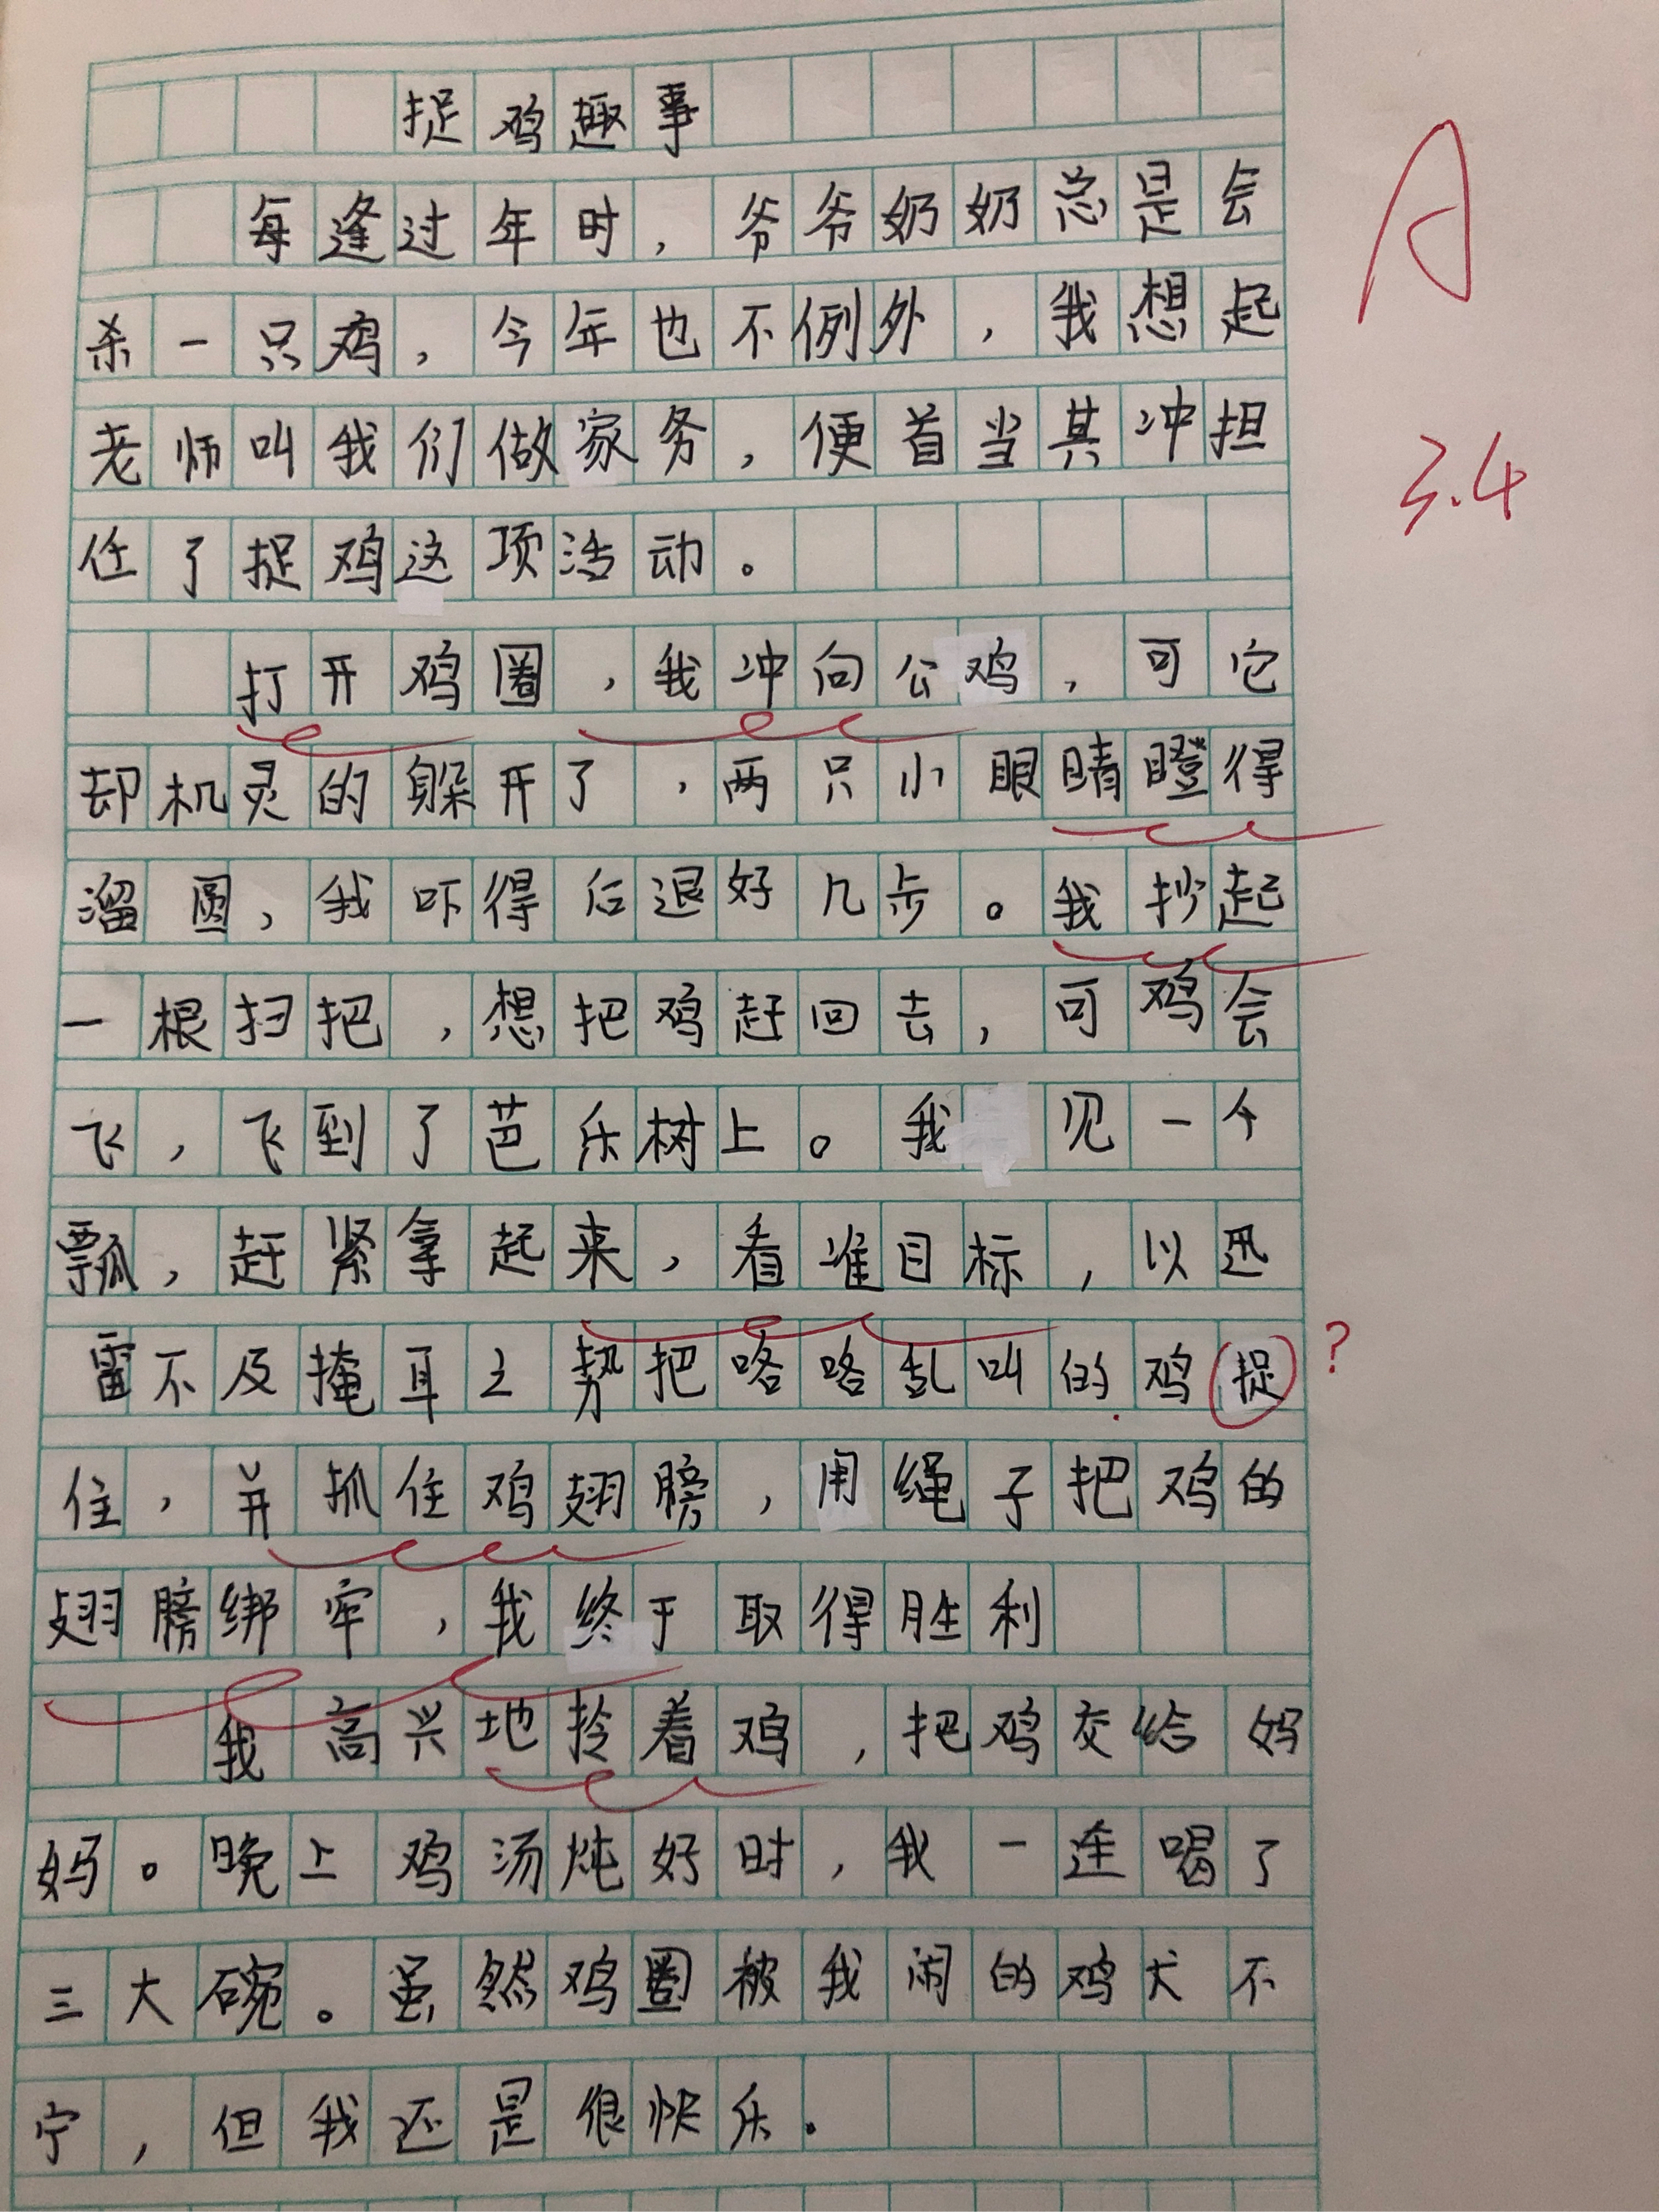 捉鸡趣事
每逢过年时，爷爷奶奶总是会
杀一只鸡，今年也不例外，我想起
老师叫我们做家务，便首当其冲担
任了捉鸡这项活动。
打开鸡圈，我冲向公鸡，可它
却机灵的躲开了，两只小眼睛瞪得
溜圆，我吓得后退好几步。我抄起
一根扫把，想把鸡赶回去，可鸡会
飞，飞到了芭乐树上。我见一个
瓢，赶紧拿起来，看准目标，以迅
雷不及掩耳之势把咯咯乱叫的鸡捉
住，并抓住鸡翅膀，用绳子把鸡的
翅膀绑牢，我终于取得胜利
我高兴地拎着鸡，把鸡交给妈
妈。晚上鸡汤炖好时，我一连喝了
三大碗。虽然鸡圈被我闹的鸡犬不
宁，但我还是很快乐.
A
3.4
?